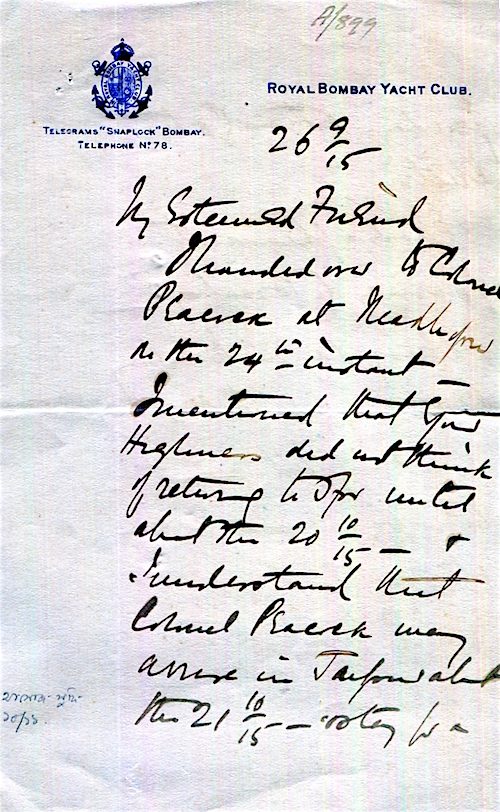 A/899
ROYAL BOMBAY YACHT CLUB.
TELEGRAMS "SNAPLOCK" BOMBAY.
TELEPHONE Nº 78.
26 9/15
My Esteemed Friend
I handed over to Colonel
Peacock at
on the 24th instant –
I mentioned that Your
Highness did not think
of returning to until
about the 20 10/15 – &
I understand that
Colonel Peacock may
arrive in about
the 21 10/15 – for a